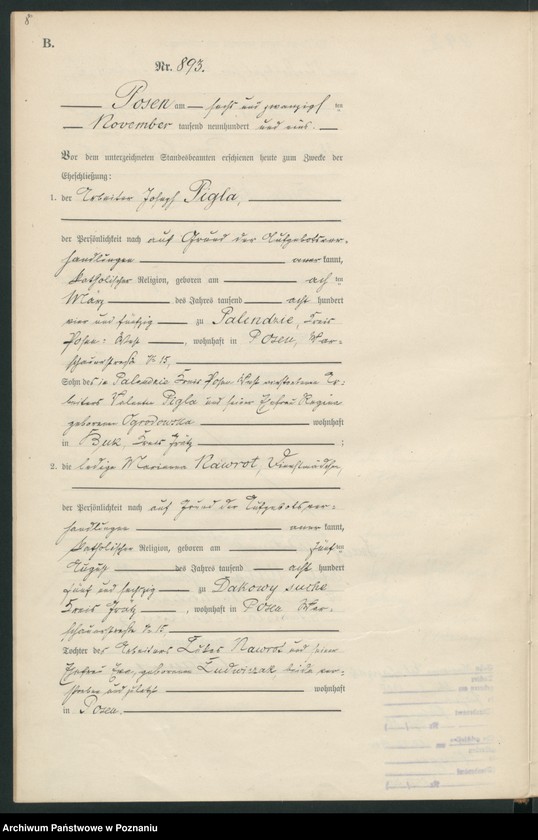 8
B.
Nr. 893.
Posen am sechs und zwanzigsten
November tausend neunhundert und eins.
Vor dem unterzeichneten Standesbeamten erschienen heute zum Zwecke der
Eheschließung:
1. der Arbeiter Joseph Pigla,
der Persönlichkeit nach auf Grund der Aufgebotsver-
handlungen anerkannt,
katholischer Religion, geboren am achten
März des Jahres tausend acht hundert
vier und fünfzig zu Palendzie, Kreis
Posen: West, wohnhaft in Posen, War-
schauerstraße No 15,
Sohn des in Palendzie Kreis Posen West verstorbenen Ar-
beiters Valentin Pigla und seiner Ehefrau Regina
geborenen Ogrodowska wohnhaft
in Buk, Kreis Grätz ;
2. die ledige Marianna Nawrot, Dienstmädchen,
der Persönlichkeit nach auf Grund der Aufgebotsver-
handlungen anerkannt,
katholischer Religion, geboren am fünften
August des Jahres tausend acht hundert
fünf und sechzig zu Dakowy suche
Kreis Grätz, wohnhaft in Posen War-
schauerstraße No 15,
Tochter des Arbeiters Lukas Nawrot und seiner
Ehefrau Eva, geborenen Ludwiczak, beide ver-
storben und zuletzt wohnhaft
in Posen.
Archiwum Państwowe w Poznaniu